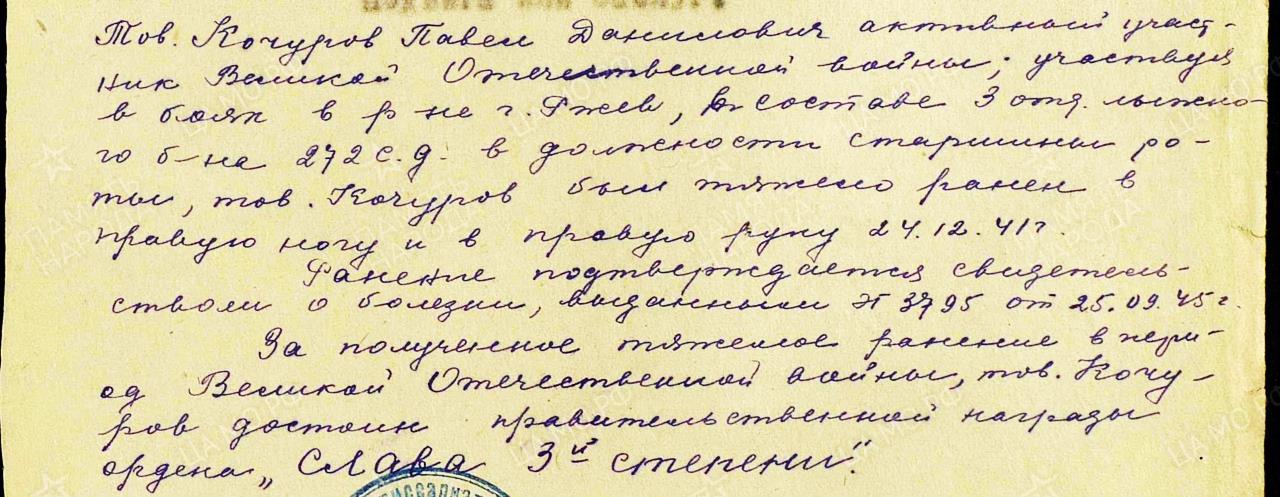 Тов. Кочуров Павел Данилович активный участ-
ник Великой Отечественной войны; участвуя
в боях в р-не г. Ржев, в составе 3 отд. лыжно-
го б-на 272 с.д. в должности старшины ро-
ты, тов. Кочуров был тяжело ранен в
правую ногу и в правую руку 24.12.41г.
Ранение подтверждается свидетель-
ством о болезни, выданным № 3795 от 25.09.45г.
За полученное тяжелое ранение в пери-
од Великой Отечественной войны, тов. Кочу-
ров достоин правительственной награды
ордена „Слава 3й степени".